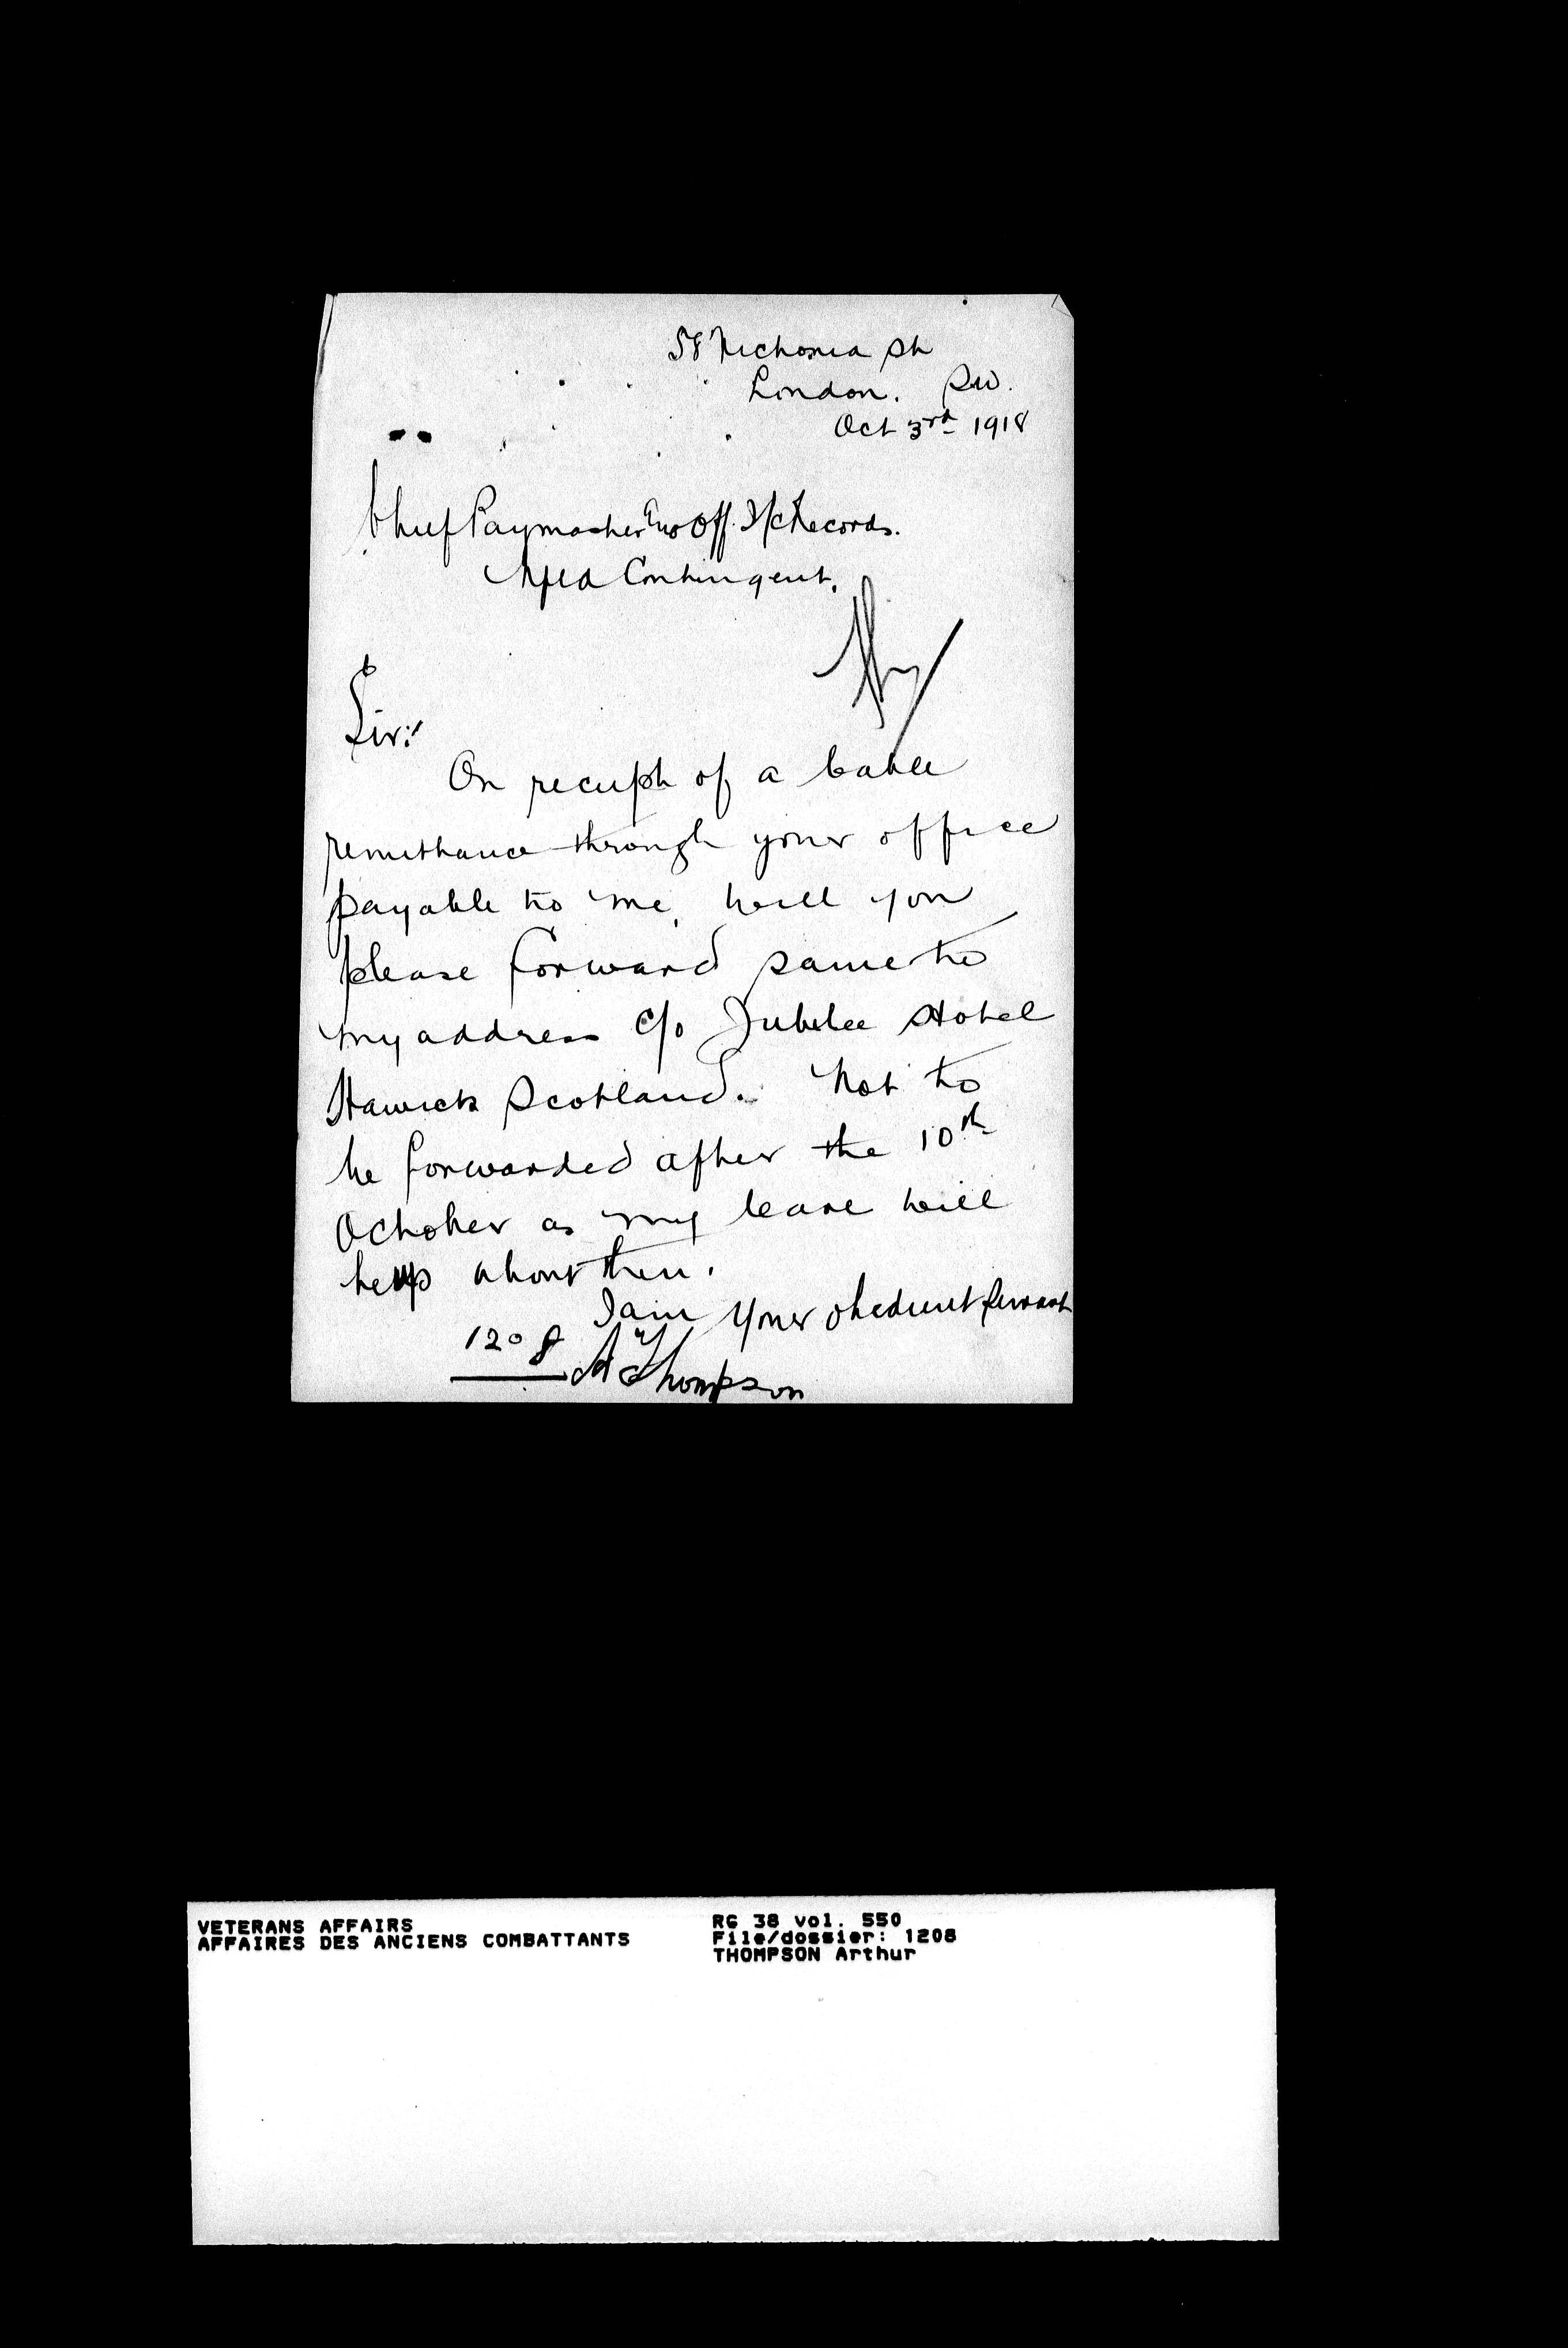 58 Victoria St
London. SW.
Oct 3rd 1918
Chief Paymaster & Off. I/c Records.
Nfld Contingent.
Sir:
On receipt of a Cable
remittance through your office
payable to me, will you
please forward same to
my address c/o Jubilee Hotel
Hawick Scotland. Not to
be forwarded after the 10th
October as my leave will
be up about then.
I am Your obedient Servant
1208 A Thompson
VETERANS AFFAIRS
AFFAIRES DES ANCIENS COMBATTANTS
RG 38 vol. 550
File/dossier: 1208
THOMPSON Arthur